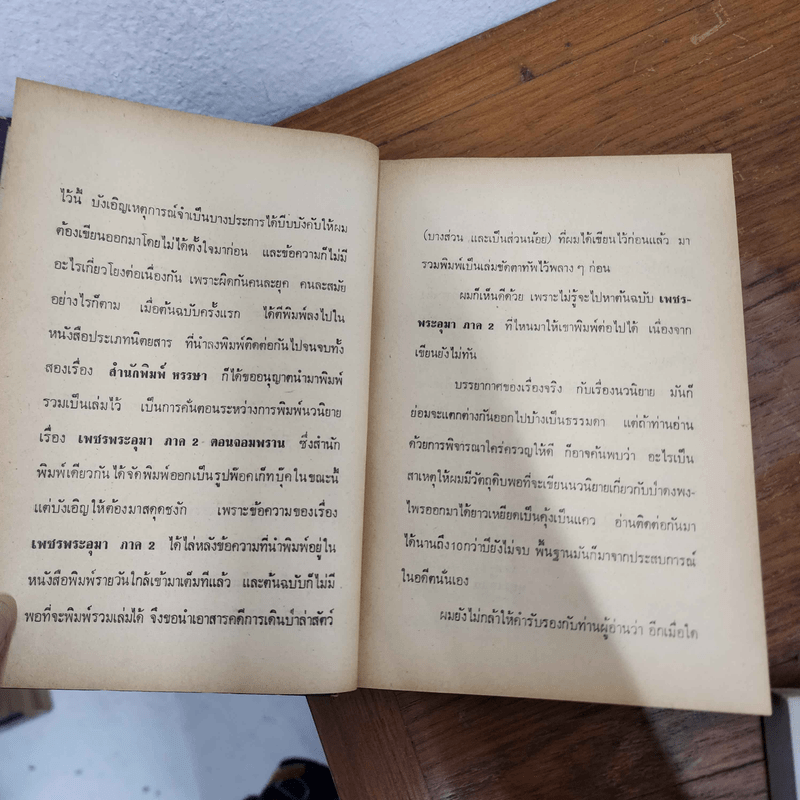 ไว้นี้ บังเอิญเหตุการณ์จำเป็นบางประการได้บีบบังคับให้ผม
ต้องเขียนออกมาโดยไม่ได้ตั้งใจมาก่อน และข้อความก็ไม่มี
อะไรเกี่ยวโยงต่อเนื่องกัน เพราะผิดกันคนละยุค คนละสมัย
อย่างไรก็ตาม เมื่อต้นฉบับครั้งแรก ได้ตีพิมพ์ลงไปใน
หนังสือประเภทนิตยสาร ที่นำลงพิมพ์ติดต่อกันไปจนจบทั้ง
สองเรื่อง สำนักพิมพ์ หรรษา ก็ได้ขออนุญาตนำมาพิมพ์
รวมเป็นเล่มไว้ เป็นการคั่นตอนระหว่างการพิมพ์นวนิยาย
เรื่อง เพชรพระอุมา ภาค 2 ตอนจอมพราน ซึ่งสำนัก
พิมพ์เดียวกัน ได้จัดพิมพ์ออกเป็นรูปพ๊อคเก็ทบุ๊คในขณะนี้
แต่บังเอิญให้ต้องมาสดุดชงัก เพราะข้อความของเรื่อง
เพชรพระอุมา ภาค 2 ได้ไล่หลังข้อความที่นำพิมพ์อยู่ใน
หนังสือพิมพ์รายวันใกล้เข้ามาเต็มทีแล้ว และต้นฉบับก็ไม่มี
พอที่จะพิมพ์รวมเล่มได้ จึงขอนำเอาสารคดีการเดินป่าล่าสัตว์
(บางส่วน และเป็นส่วนน้อย) ที่ผมได้เขียนไว้ก่อนแล้ว มา
รวมพิมพ์เป็นเล่มขัดตาทัพไว้พลาง ๆ ก่อน
ผมก็เห็นดีด้วย เพราะไม่รู้จะไปหาต้นฉบับ เพชร-
พระอุมา ภาค 2 ที่ไหนมาให้เขาพิมพ์ต่อไปได้ เนื่องจาก
เขียนยังไม่ทัน
บรรยากาศของเรื่องจริง กับเรื่องนวนิยาย มันก็
ย่อมจะแตกต่างกันออกไปบ้างเป็นธรรมดา แต่ถ้าท่านอ่าน
ด้วยการพิจารณาใคร่ครวญให้ดี ก็อาจค้นพบว่า อะไรเป็น
สาเหตุให้ผมมีวัตถุดิบพอที่จะเขียนนวนิยายเกี่ยวกับป่าดงพง-
ไพรออกมาได้ยาวเหยียดเป็นคุ้งเป็นแคว อ่านติดต่อกันมา
ได้นานถึง10กว่าปียังไม่จบ พื้นฐานมันก็มาจากประสบการณ์
ในอดีตนั่นเอง
ผมยังไม่กล้าให้คำรับรองกับท่านผู้อ่านว่า อีกเมื่อใด